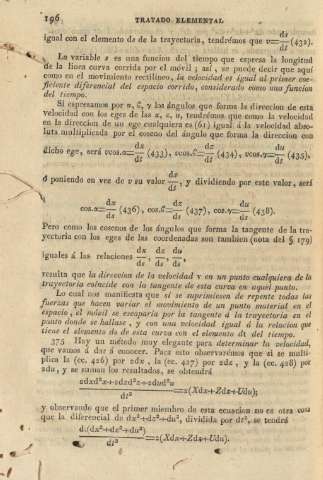 196 TRATADO ELEMENTAL
igual con el elemento ds de la trayectoria, tendrémos que v=ds/dt (432).
La variable s es una funcion del tiempo que espresa la longitud
de la línea curva corrida por el móvil; así, se puede decir que aquí
como en el movimiento rectilíneo, la velocidad es igual al primer coe-
ficiente diferencial del espacio corrido, considerado como una funcion
del tiempo.
Si espresamos por α, ϐ, γ los ángulos que forma la direccion de esta
velocidad con los eges de las x, z, u, tendrémos que como la velocidad
en la direccion de un ege cualquiera es (61) igual á la velocidad abso-
luta multiplicada por el coseno del ángulo que forma la direccion con
dicho ege, será vcos.α=dx/dt (433), vcos.ϐ=dz/dt (434), vcos.γ=du/dt (435),
ó poniendo en vez de v su valor ds/dt, y dividiendo por este valor, será
cos.α=dx/ds (436), cos.ϐ=dz/ds (437), cos.γ=du/ds (438).
Pero como los cosenos de los ángulos que forma la tangente de la tra-
yectoria con los eges de las coordenadas son tambien (nota del § 179)
iguales á las relaciones dx/ds, dz/ds, du/ds,
resulta que la direccion de la velocidad v en un punto cualquiera de la
trayectoria coincide con la tangente de esta curva en aquel punto.
Lo cual nos manifiesta que si se suprimiesen de repente todas las
fuerzas que hacen variar el movimiento de un punto material en el
espacio, el móvil se escaparia por la tangente á la trayectoria en el
punto donde se hallase, y con una velocidad igual á la relacion que
tiene el elemento ds de esta curva con el elemento dt del tiempo.
375 Hay un método muy elegante para determinar la velocidad,
que vamos á dar á conocer. Para esto observarémos que si se multi-
plica la (ec. 426) por 2dx, la (ec. 427) por 2dz, y la (ec. 428) por
2du, y se suman los resultados, se obtendrá
2dxd²x+2dzd²z+2dud²u/dt² =2(Xdx+Zdz+Udu);
y observando que el primer miembro de esta ecuacion no es otra cosa
que la diferencial de dx²+dz²+du², dividida por dt², se tendrá
d.(dx²+dz²+du²)/dt² =2(Xdx+Zdz+Udu).